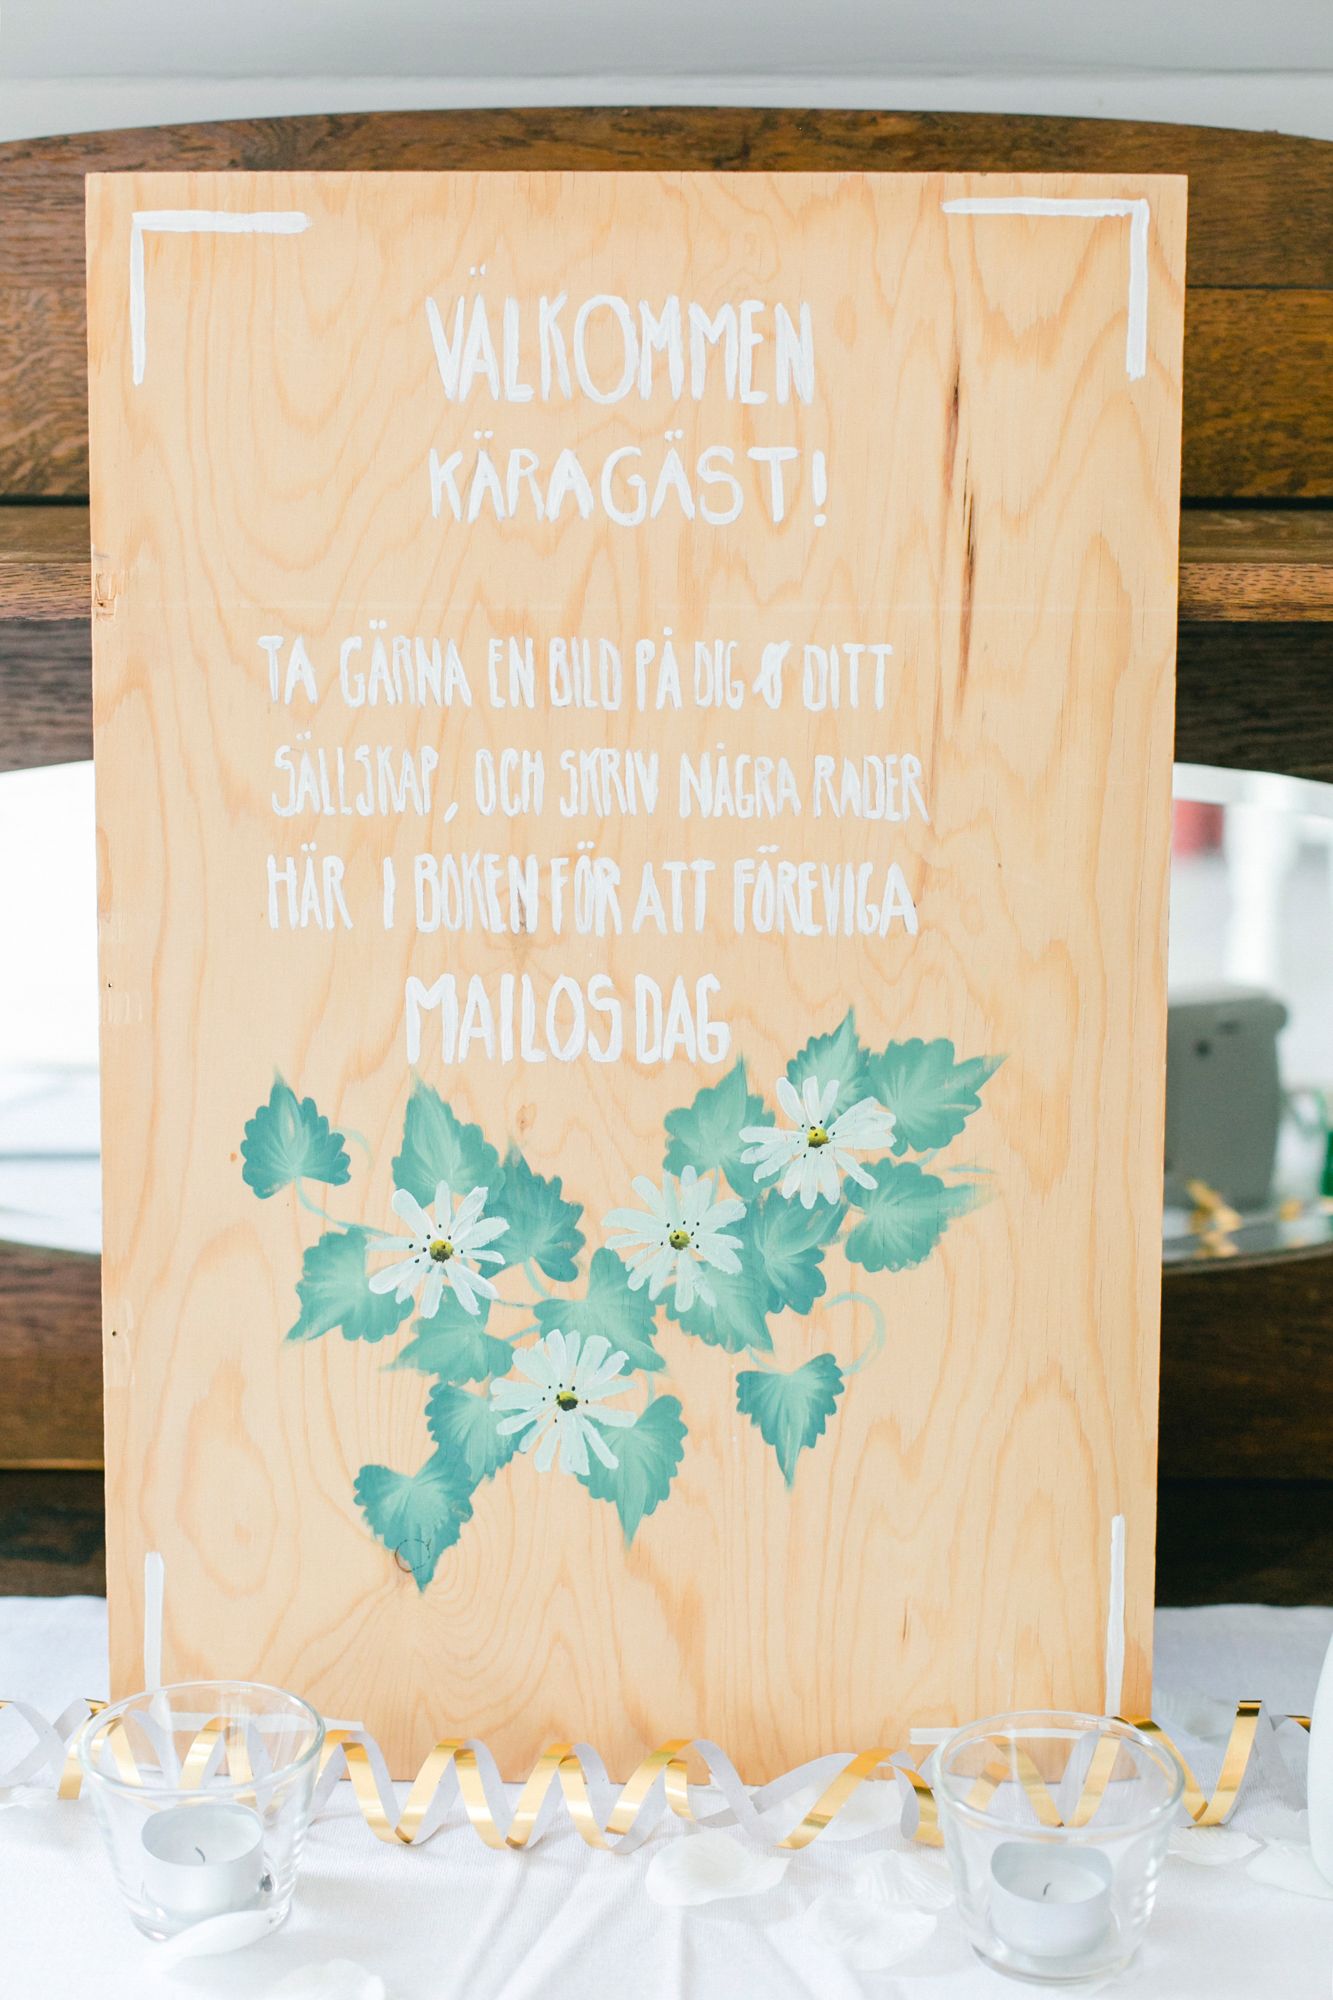 VÄLKOMMEN
KÄRAGÄST!
TA GÄRNA EN BILD PÅ DIG & DITT
SÄLLSKAP, OCH SKRIV NÅGRA RADER
HÄR I BOKEN FÖR ATT FÖREVIGA
MAILOS DAG